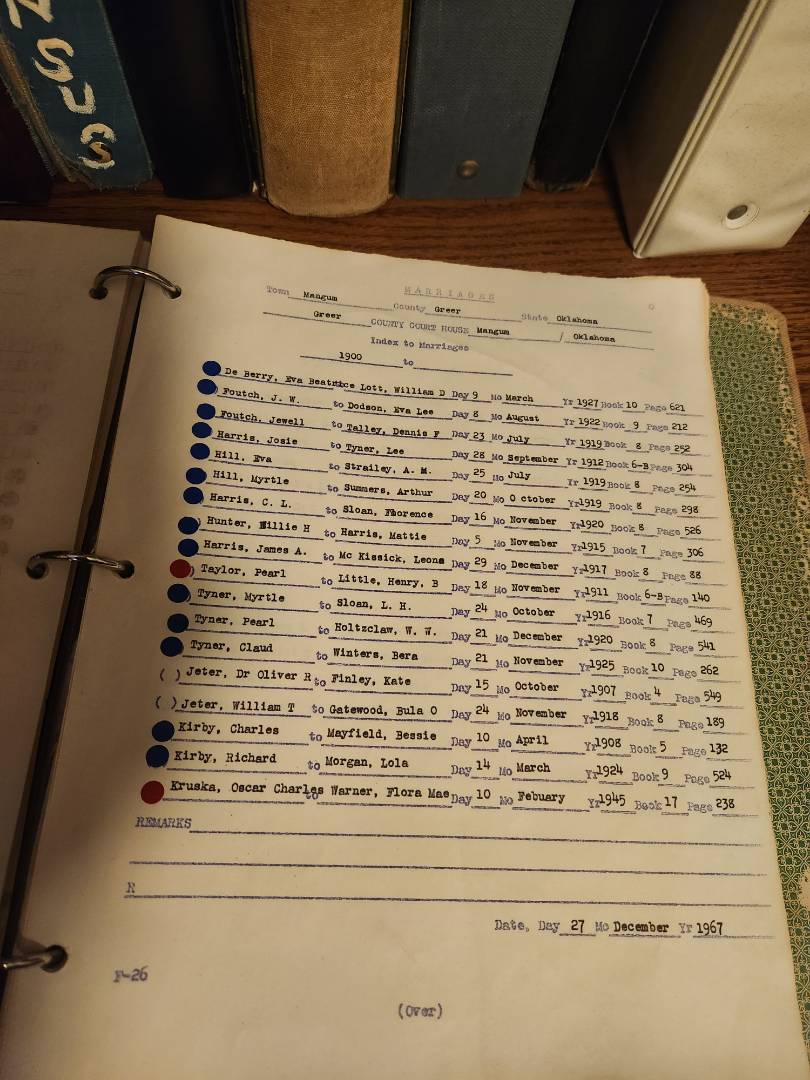 NSUS
MARRIAGES
Town Mangum County Greer State Oklahoma
Greer COUNTY COURT HOUSE Mangum / Oklahoma
Index to Marriages
1900 to
De Berry, Eva Beatrice Lott, William D Day 9 Mo March Yr 1927 Book 10 Page 621
Foutch, J. W. to Dodson, Eva Lee Day 8 Mo August Yr 1922 Book 9 Page 212
Foutch, Jewell to Talley, Dennis F Day 23 Mo July Yr 1919 Book 8 Page 252
Harris, Josie to Tyner, Lee Day 28 Mo September Yr 1912 Book 6-B Page 304
Hill, Eva to Strailey, A. M. Day 25 Mo July Yr 1919 Book 8 Page 254
Hill, Myrtle to Summers, Arthur Day 20 Mo O ctober Yr 1919 Book 8 Page 298
Harris, C. L. to Sloan, Florence Day 16 Mo November Yr 1920 Book 8 Page 526
Hunter, Willie H to Harris, Mattie Day 5 Mo November Yr 1915 Book 7 Page 306
Harris, James A. to Mc Kissick, Leona Day 29 Mo December Yr 1917 Book 8 Page 88
) Taylor, Pearl to Little, Henry, B Day 18 Mo November Yr 1911 Book 6-B Page 140
Tyner, Myrtle to Sloan, L. H. Day 24 Mo October Yr 1916 Book 7 Page 469
Tyner, Pearl to Holtzclaw, W. W. Day 21 Mo December Yr 1920 Book 8 Page 541
Tyner, Claud to Winters, Bera Day 21 Mo November Yr 1925 Book 10 Page 262
( ) Jeter, Dr Oliver R to Finley, Kate Day 15 Mo October Yr 1907 Book 4 Page 549
( ) Jeter, William T to Gatewood, Bula O Day 24 Mo November Yr 1918 Book 8 Page 189
Kirby, Charles to Mayfield, Bessie Day 10 Mo April Yr 1908 Book 5 Page 132
Kirby, Richard to Morgan, Lola Day 14 Mo March Yr 1924 Book 9 Page 524
Kruska, Oscar Charles to Warner, Flora Mae Day 10 Mo Febuary Yr 1945 Book 17 Page 238
REMARKS
R
Date, Day 27 Mo December Yr 1967
F-26
(Over)